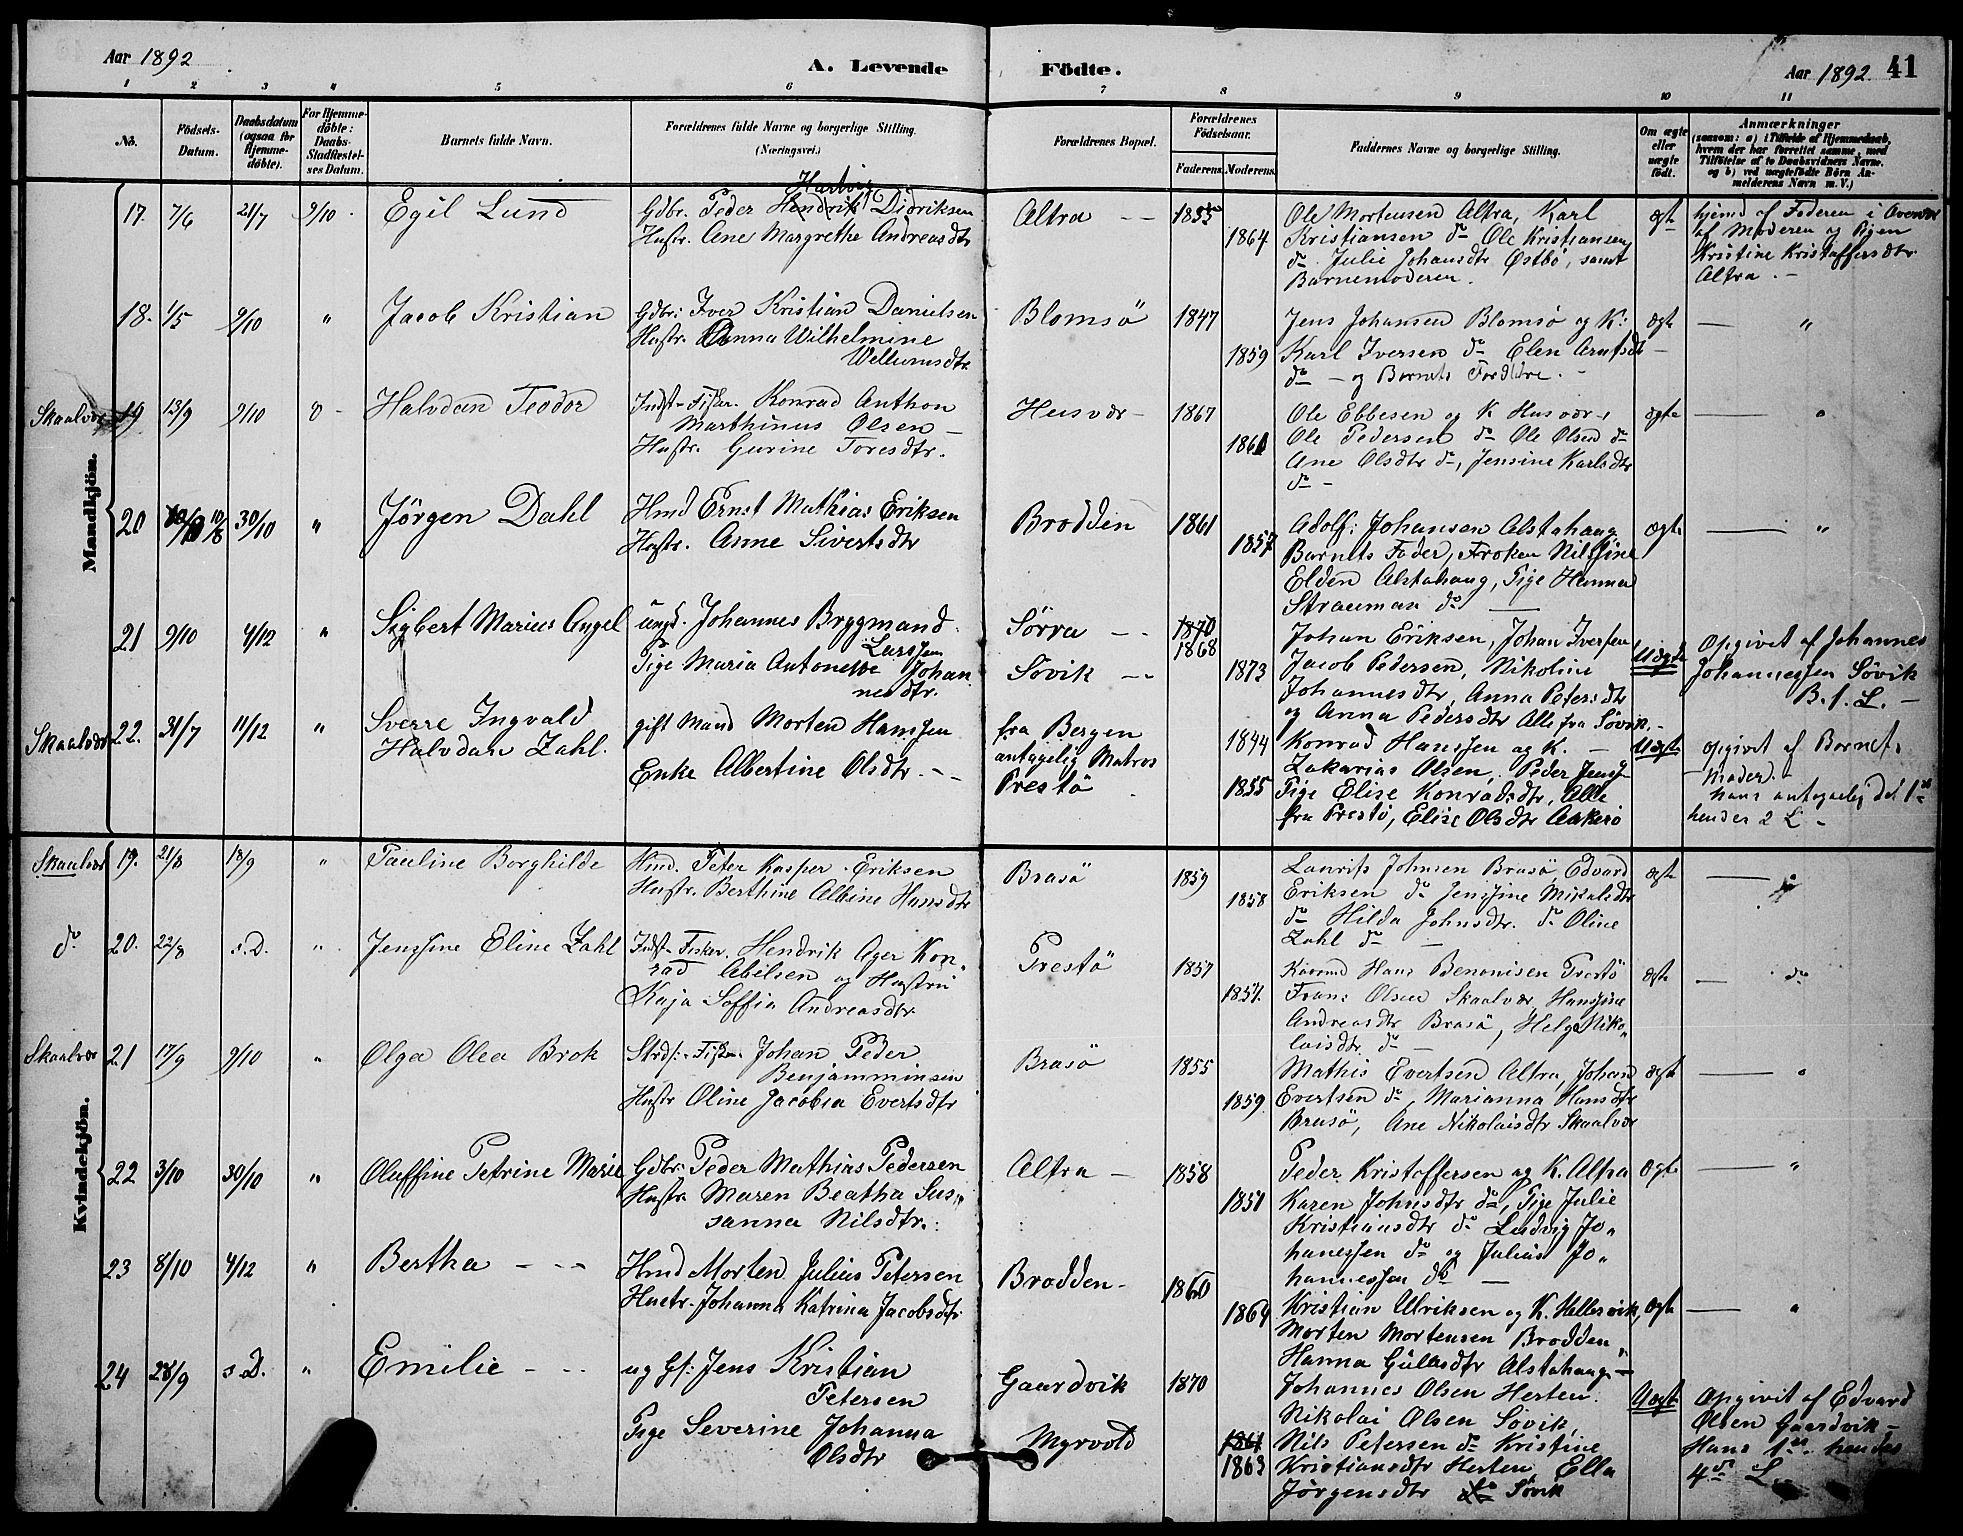 Aar 1892
A. Levende Födte.
Aar 1892. 41
1 2 3 4 5 6 7 8 9 10 11
No.
Födsels-Datum.
Daabsdatum (ogsaa for Hjemme-döbte).
For Hjemme-döbte: Daabs-Stadfæstel-ses Datum.
Barnets fulde Navn.
Forældrenes fulde Navne og borgerlige Stilling. (Næringsvei.)
Forældrenes Bopæl.
Forældrenes Födselsaar.
Faderens. Moderens.
Faddernes Navne og borgerlige Stilling.
Om ægte eller uægte födt.
Anmærkninger
(saasom: a) i Tilfælde af Hjemmedaab, hvem der har forrettet samme, med Tilföielse af to Daabsvidners Navne. og b) ved uægtefödte Börn An-melderens Navn m. V.)
Mandkjön.
17. 7/6 21/7 9/10 - Egil Lund
Hartvig
Gdbr. Peder Hendrik Didriksen
Hustr. Ane Margrethe Andreasdtr
Altra - - 1855 1864
Ole Mortensen Altra, Karl
Kristiansen do Ole Kristiansen
do. Julie Johansdtr Østbö, samt
Barnemoderen.
ægte
hjemd af Faderen i Overvær
af Moderen og Pigen
Kristine Kristoffersdtr
Altra. -
18. 1/5 9/10 " Jacob Kristian
Gdbr: Iver Kristian Danielsen
Hustr. Anna Wilhelmine
Wellumsdtr
Blomsö 1847 1859
Jens Johansen Blomsö og K:
Karl Iversen do Elen Arntsdt -
do - og Barnets Forældre. -
ægte — "
Skaalvær 19 13/9 9/10 " - Halvdan Teodor
Indst-Fisker. Konrad Anthon
Marthinus Olsen -
Hustr. Gurine Toresdtr.
Husvær - 1867 1861
Ole Ebbesen og K Husvær
Ole Pedersen do Ole Olsen do
Ane Olsdtr do, Jensine Karlsdtr
do -
ægte — "
20 10/8 30/10 " Jörgen Dahl
Hmd Ernst Mathias Eriksen
Hustr. Anne Sivertsdtr
Brodden 1861 1857
Adolf Johansen Alstahaug
Barnets Fader, Froken Nilsine
Elden Alstahaug, Pige Hanna
Strauman do —
ægte — "
21 9/10 4/12 " Sigbert Marius Angel
ungk. Johannes Bryggmand
Larssen
Pige Maria Antonette Johan
nesdtr.
Sörra - - 1870 1868
Sövik - - 1873
Johan Eriksen, Johan Iversen
Jacob Pedersen, Nikoline
Johannesdtr, Anna Petersdtr
og Anna Pedersdtr Alle fra Sövik. -
Uægte
Opgivet af Johannes
Johannessen Sövik
B. 1. L. -
Skaalvær 22. 31/7 11/12 " Sverre Ingvald
Halvdan Zahl.
gift Mand Morten Hanssen
Enke Albertine Olsdtr. - -
fra Bergen
antagelig Matros
Prestö
1844 1855
Konrad Hanssen og K. -
Zakarias Olsen. Peder Jens
Pige Elise Konradsdtr, Alle
fra Prestö, Elise Olsdtr Aakerö
Uægte
opgivet af Barnets
Moder. -
hans antagelig det 1ste
hendes 2 L -
Kvindekjön.
Skaalvær 19. 21/8 18/9 " Pauline Borghilde
Hmd. Peter Kasper Eriksen
Hustr. Berthine Albine Hansdtr
Brasö 1859 1858
Laurits Johnsen Brasö, Edvard
Eriksen do Jenssine Mikalsdtr
do Hilda Johnsdtr. do Oline
Zahl do -
ægte — "
do 20. 22/8 s. D. " Jenssine Eline Zahl
Indst-Fisker. Hendrik Ager Kon-
rad Abelsen og Hustru
Kaja Soffia Andreasdtr
Prestö 1857 1857.
Kaarmd Hans Benonisen Prestö
Frans Olsen Skaalvær, Hanssine
Andreasdtr Brasö, Helga Niko-
laisdtr do -
ægte — do
Skaalvær 21 17/9 9/10 " Olga Olea Brok
Strds:-Fisker. Johan Peder
Benjamminsen
Hustr Oline Jacobea Evertsdtr
Brasö 1855 1859
Mathis Evertsen Altra, Johan
Evertsen do, Marianna Hansdtr
Brasö, Ane Nikolaisdtr Skaalvær
ægte — "
22 3/10 30/10 " Oluffine Petrine Marie
Gdbr. Peder Mathias Pedersen
Hustr Maren Beatha Sus-
sanna Nilsdtr.
Altra - 1858 1851
Peder Kristoffersen og K. Altra
Karen Johnsdtr do, Pige Julie
Kristiansdtr do Ludvig Jo-
hanessen do og Julius Jo-
hannessen do —
ægte — "
23 8/10 4/12 " Bertha - - -
Hmd Morten Julius Petersen
Hustr. Johanna Katrina Jacobsdtr
Brodden - 1860 1864
Kristian Ulriksen og K. Hellesvik,
Morten Mortensen Brodden,
Hanna Gullsdtr Alstahaug -
ægte — "
24 28/9 s D. " Emilie - - -
ug Gs: Jens Kristian
Petersen
Pige Severine Johanna
Olsdtr
Gaardvik 1870
Myrvold 1861 1863
Johannes Olsen Herten.
Nikolai Olsen Sövik,
Nils Petersen do Kristine
Kristiansdtr Herten, Ella
Jörgensdtr do Sövik
Uægte
Opgivit af Edvard
Olsen Gaardvik -
Hans 1ste hendes
4de L.